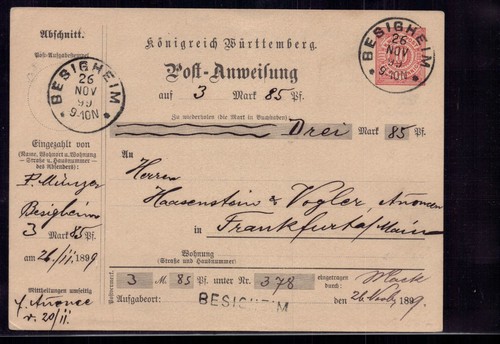 Abschnitt.
Post-Aufgabestempel
BESIGHEIM
26
NOV
99
9-10N
Eingezahlt von
(Name, Wohnort u. Wohnung
— Straße u. Hausnummer —
des Absenders).
Besigheim
3 Mark 85 Pf.
am 26/11. 1899
Mittheilungen umseitig
v. 20/11.
Königreich Württemberg.
Post-Anweisung
auf 3 Mark 85 Pf.
Zu wiederholen (die Mark in Buchstaben)
Drei Mark 85 Pf.
An
Herren
Haasenstein & Vogler, Annoncen
in Frankfurt a/Main
Wohnung
(Straße und Hausnummer)
3 M. 85 Pf. unter Nr. 378 eingetragen durch:
Aufgabeort: BESIGHEIM den 26. Novbr 1899.
BESIGHEIM
26
NOV
99
9-10N